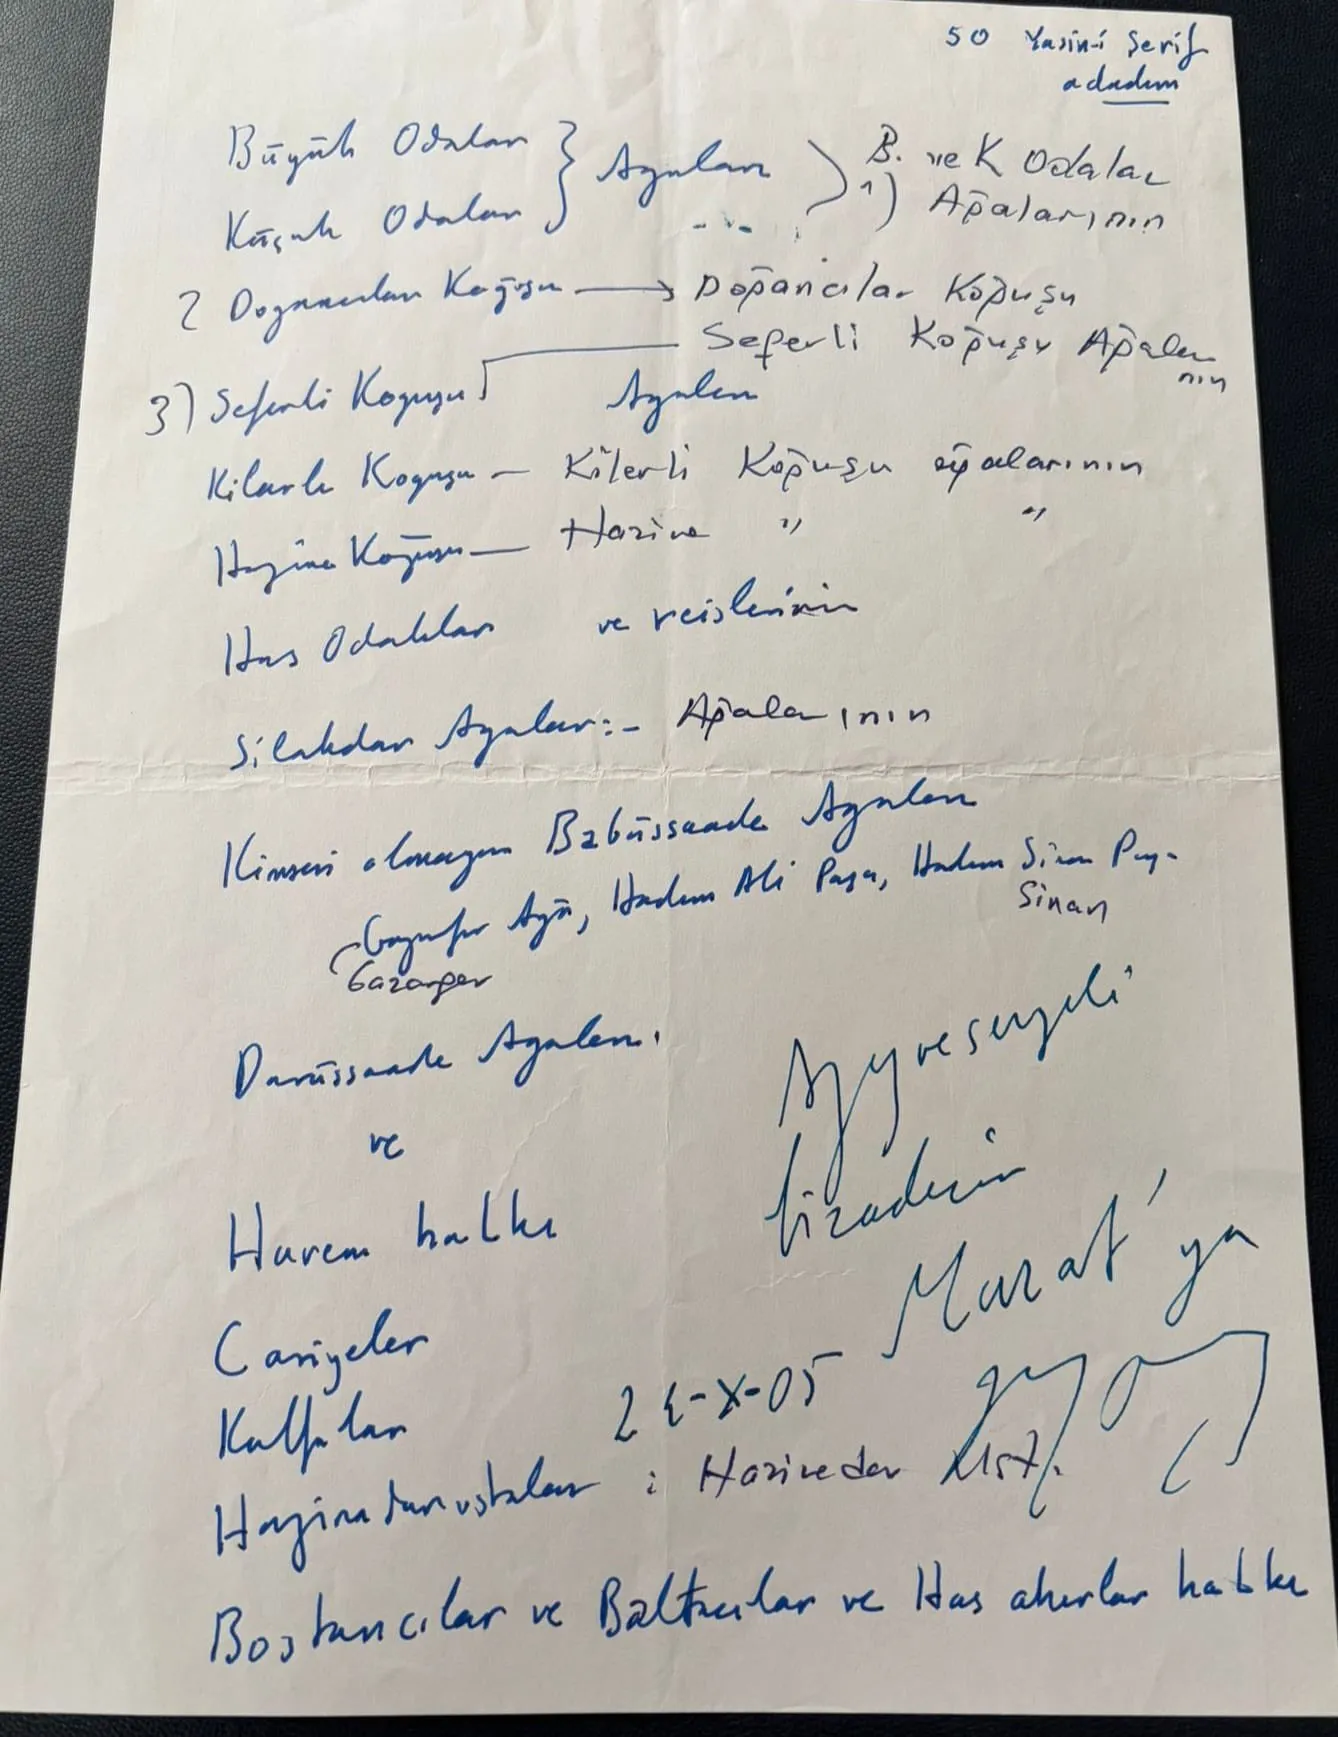 50 Yasin-i Şerif
adadım
Büyük Odalar } Ağaları ) B. ve K Odalar
Küçük Odalar 1) Ağalarının
2 Doğancılar Koğuşu → Doğancılar Koğuşu
Seferli Koğuşu Ağaları
nın
3) Seferli Koğuşu Ağaları
Kilerli Koğuşu — Kilerli Koğuşu ağalarının
Hazine Koğuşu — Hazine " "
Has Odalılar ve reislerinin
Silahdar Ağalar:- Ağalarının
Kimsesi olmayan Babüssaade Ağaları
Gazanfer Ağa, Hadım Ali Paşa, Hadım Sinan Paşa
Sinan
Gazanfer
Darüssaade Ağaları.
ve
Harem halkı
Cariyeler
Kalfalar
Hazinedar ustalar : Hazinedar Ust.
Bostancılar ve Baltacılar ve Has ahırlar halkı
Murat'ya
-X-05